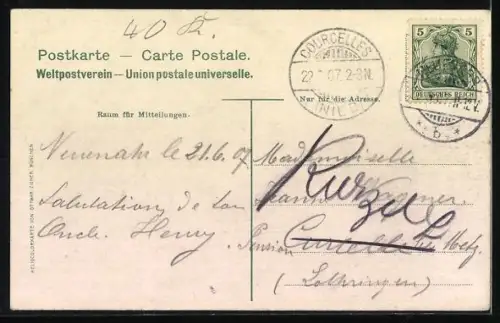 40 K.
Postkarte — Carte Postale.
Weltpostverein — Union postale universelle.
COURCELLES
22 07. 2-3N.
5 5
DEUTSCHES REICH
* b *
Raum für Mitteilungen.
Nur für die Adresse.
Neuenahr le 21.6.07
Mademoiselle
Kurzel
Salutation de ton
Jeanne
Oncle Henry.
Pension
Courcelles bei Metz.
(Lothringen)
HELIOCOLORKARTE VON OTTMAR ZIEHER, MÜNCHEN